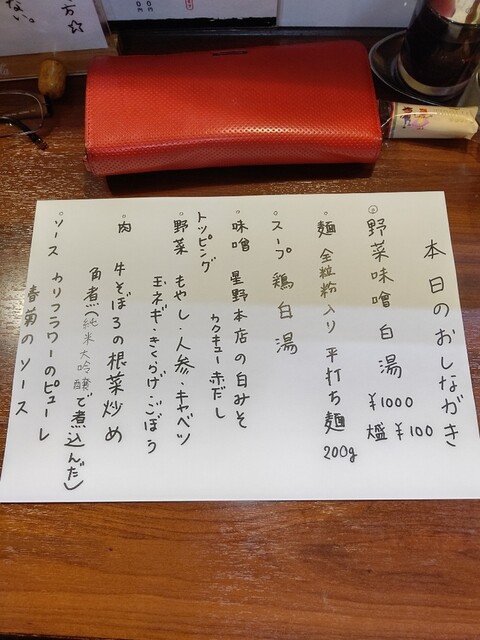 本日のおしながき
◎野菜味噌白湯
¥1000
大盛 ¥100
。麺 全粒粉入り 平打ち麺
200g
。スープ 鶏白湯
。味噌 星野本店の白みそ
カクキュー赤だし
トッピング
。野菜 もやし・人参・キャベツ
玉ネギ・きくらげ・ごぼう
。肉 牛そぼろの根菜炒め
角煮(純米大吟醸で煮込んだ)
。ソース カリフラワーのピューレ
春菊のソース